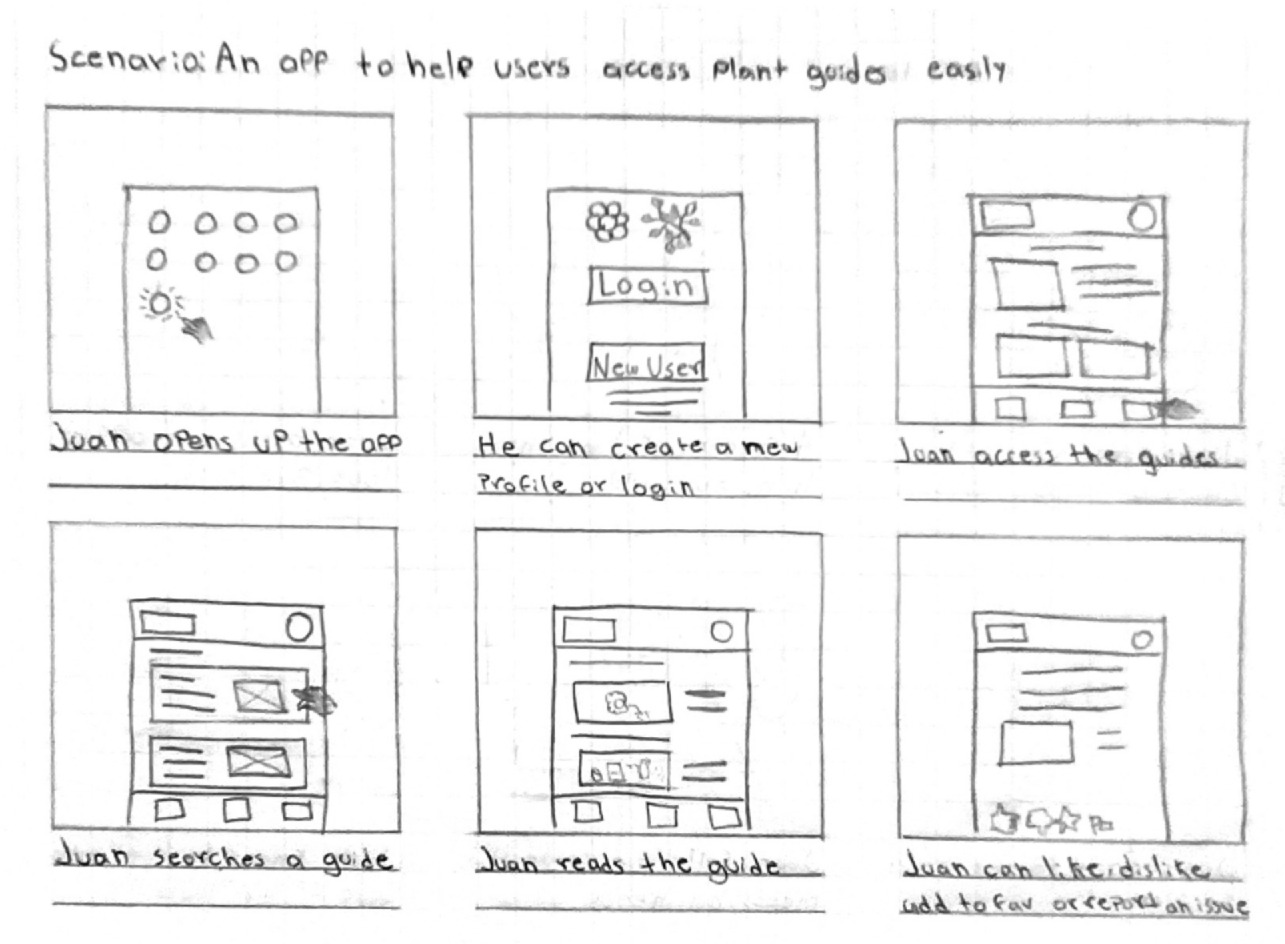 Scenario: An app to help users access Plant guides easily
Login
New User
Juan opens up the app
He can create a new
Profile or login
Juan access the guides
Juan searches a guide
Juan reads the guide
Juan can like, dislike
add to fav or report an issue